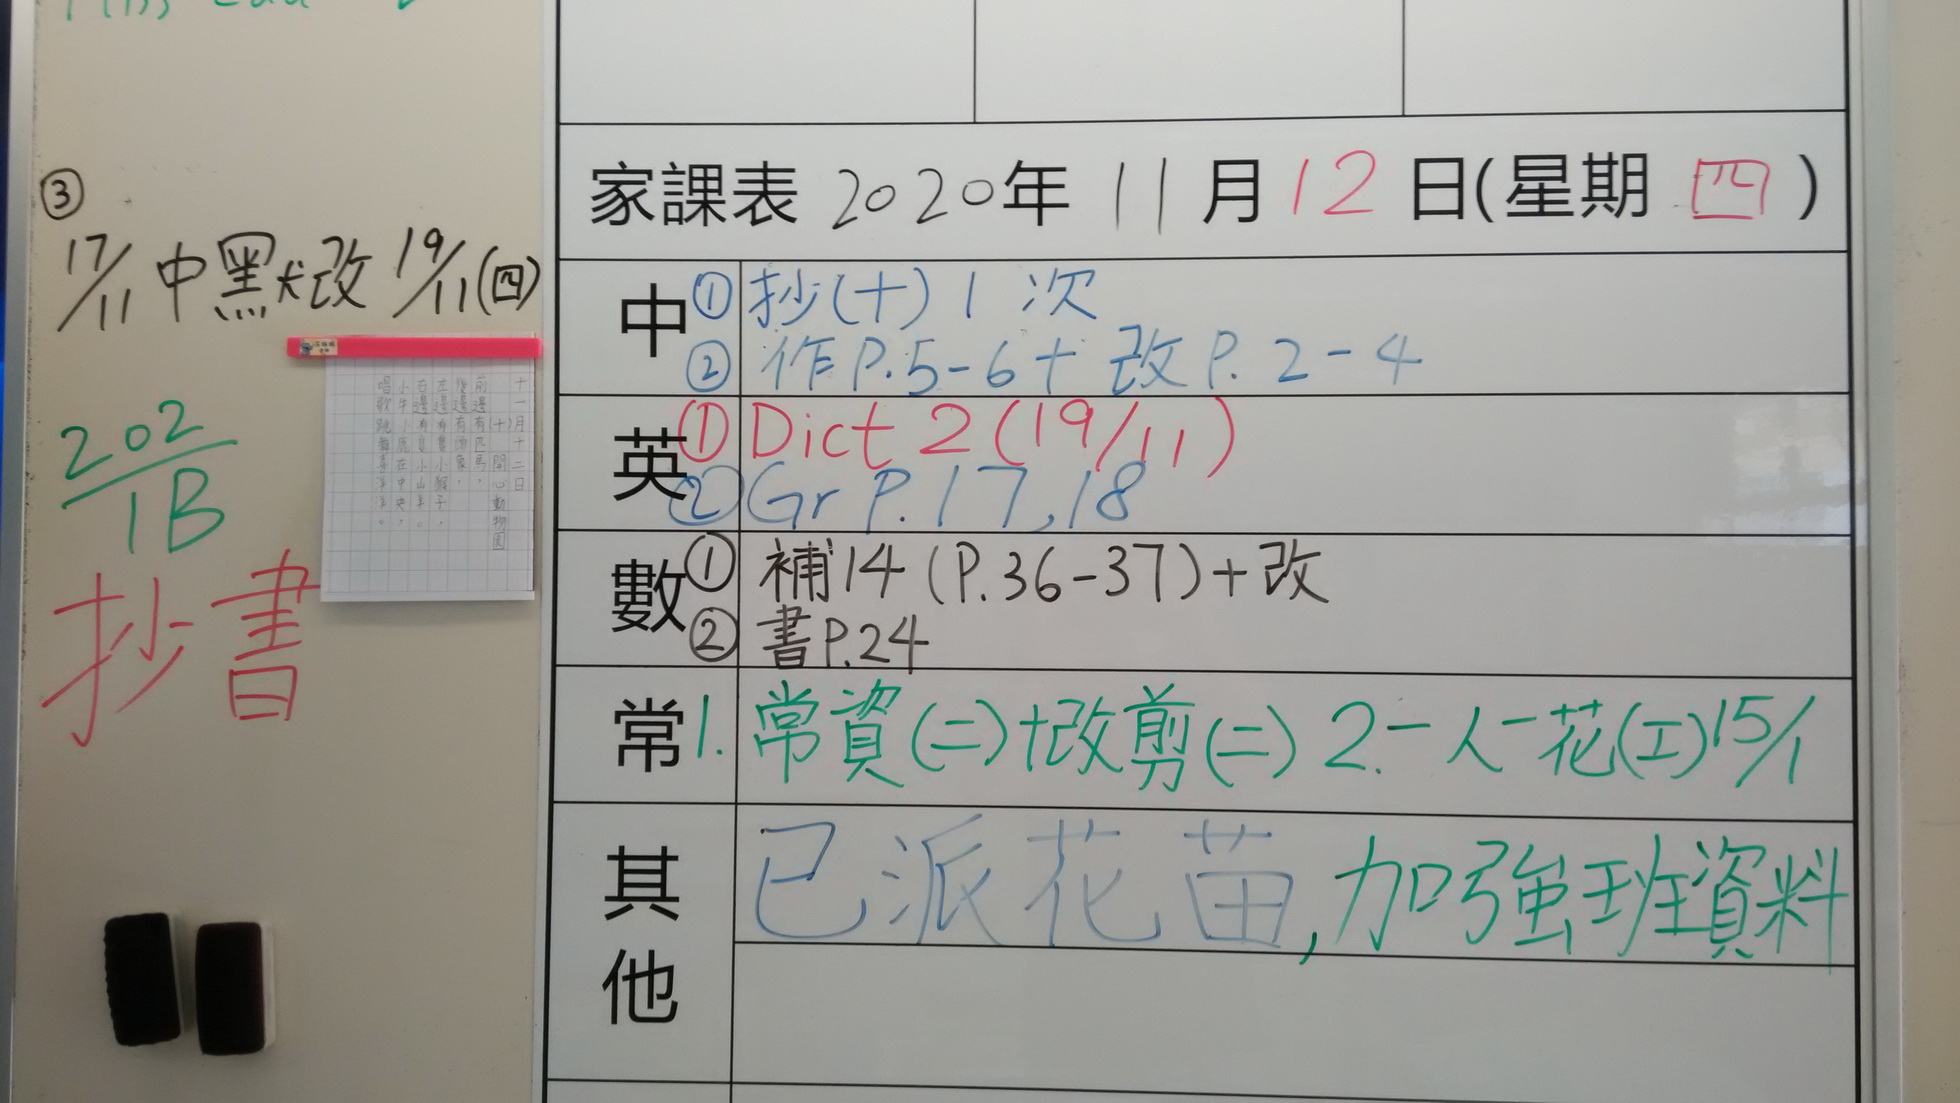 ③
17/11 中默改 19/11(四)
202
1B
抄書
十一月十二日
(十) 開心動物園
前邊有匹馬，
後邊有頭象，
左邊有隻小猴子，
右邊有小山羊。
小牛小鹿在中央，
唱歌跳舞喜洋洋。
家課表 2020年 11月12日(星期四)
中 ① 抄(十) 1 次
② 作P.5-6+改P.2-4
英 ① Dict 2 (19/11)
② Gr P.17,18
數 ① 補14 (P.36-37)+改
② 書P.24
常 1. 常資(二)+改剪(二) 2.一人一花(工)15/1
其他 已派花苗,加強班資料